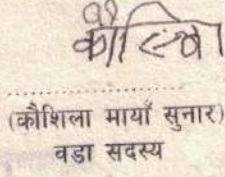 (कौशिला मायाँ सुनार)
वडा सदस्य